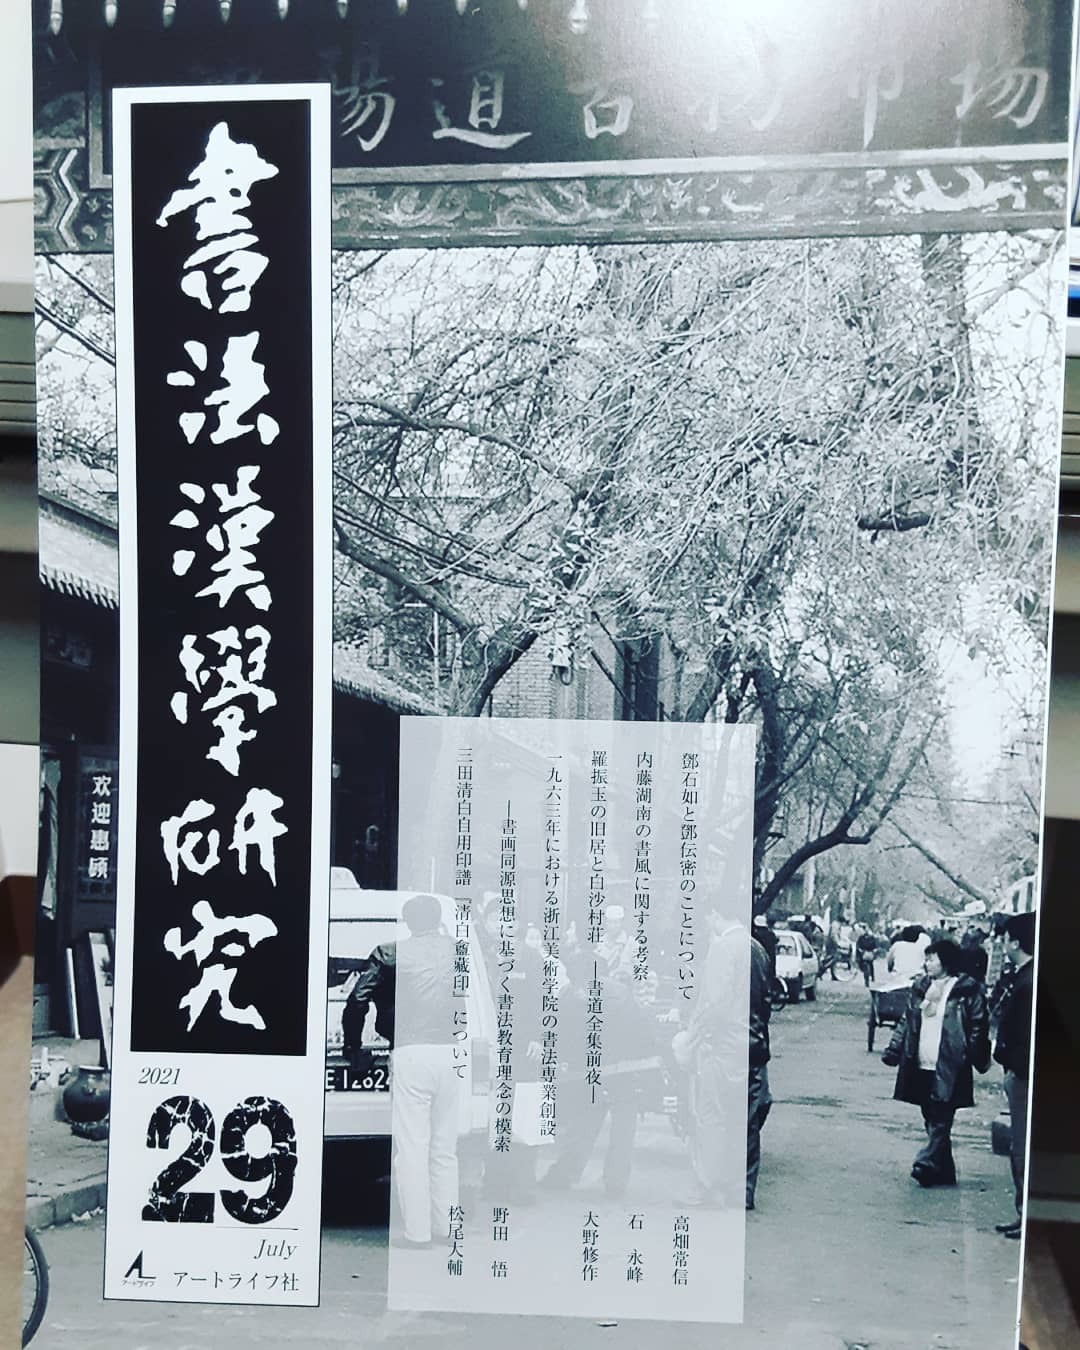 陽道古物市场
書法漢學研究
2021
29
July
アートライフ
アートライフ社
欢迎惠顾
鄧石如と鄧伝密のことについて　高畑常信
内藤湖南の書風に関する考察　石　永峰
羅振玉の旧居と白沙村荘　―書道全集前夜―　大野修作
一九六三年における浙江美術学院の書法専業創設
―書画同源思想に基づく書法教育理念の模索　野田　悟
三田清白自用印譜『清白盦蔵印』について　松尾大輔